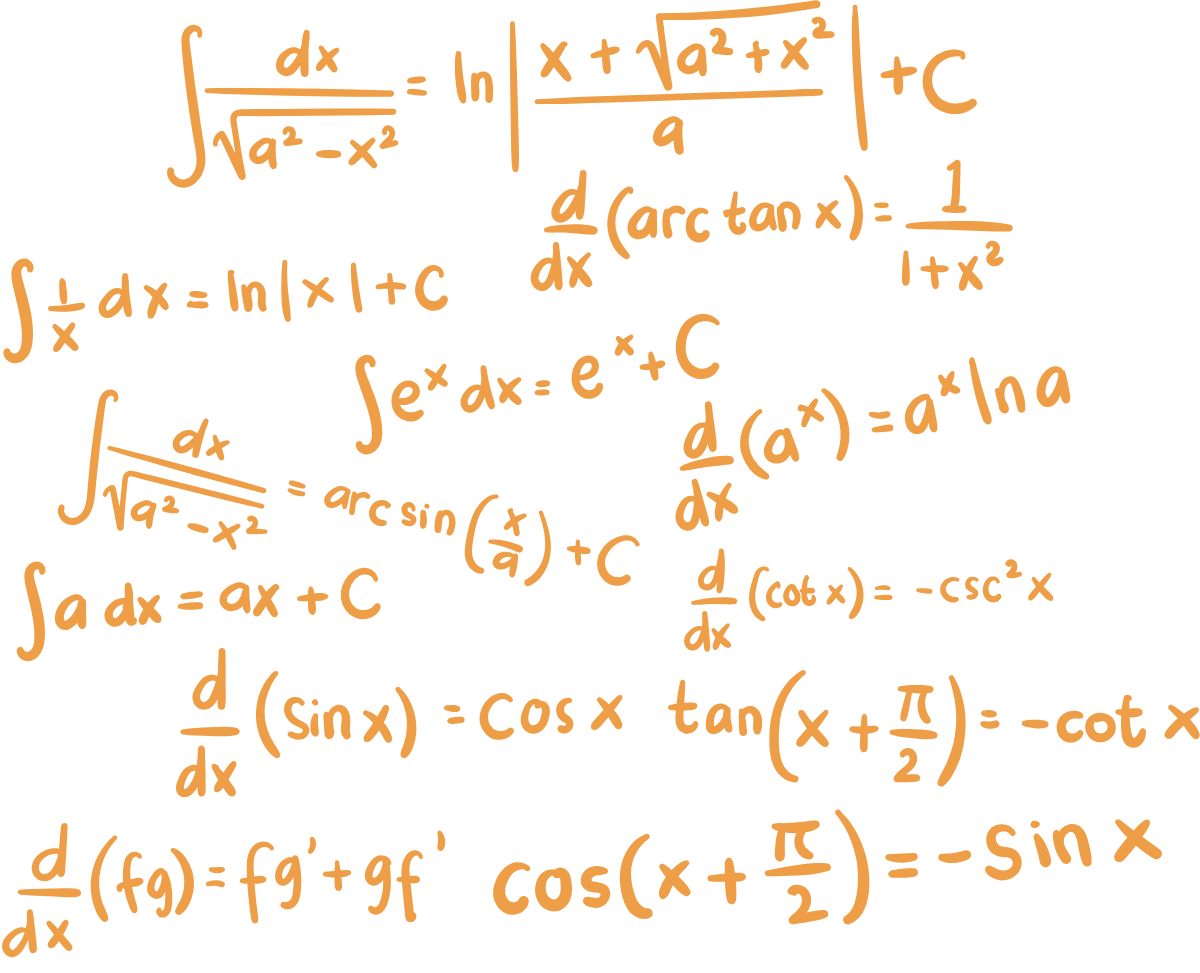 ∫ dx/√(a² − x²) = ln | (x + √(a² + x²))/a | + C
d/dx (arc tan x) = 1/(1 + x²)
∫ 1/x dx = ln | x | + C
∫ eˣ dx = eˣ + C
d/dx (aˣ) = aˣ ln a
∫ dx/√(a² − x²) = arc sin (x/a) + C
∫ a dx = ax + C
d/dx (cot x) = −csc² x
d/dx (sin x) = cos x
tan(x + π/2) = −cot x
d/dx (fg) = fg' + gf'
cos(x + π/2) = −sin x